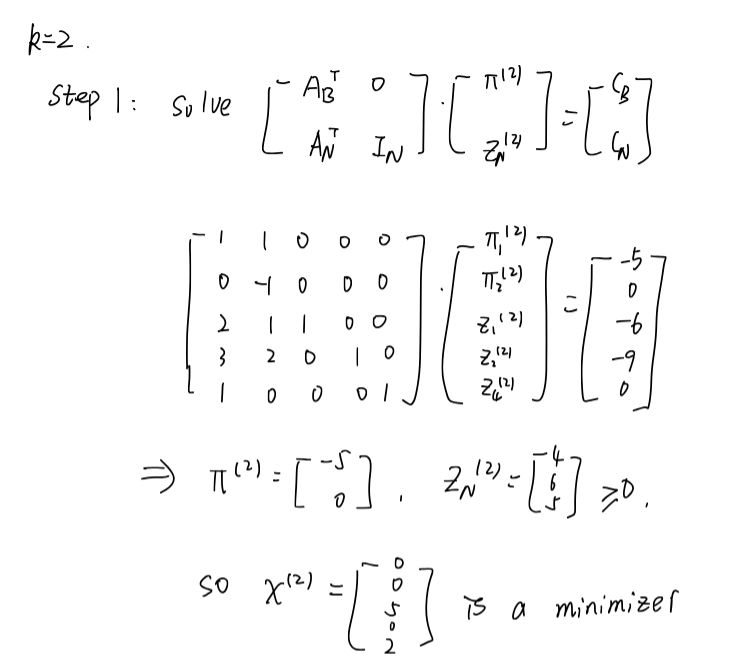 k=2.
Step 1: Solve [A_B^T 0; A_N^T I_N] · [π^(2); Z_N^(2)] = [C_B; C_N]
[1 1 0 0 0; 0 -1 0 0 0; 2 1 1 0 0; 3 2 0 1 0; 1 0 0 0 1] · [π_1^(2); π_2^(2); Z_1^(2); Z_2^(2); Z_4^(2)] = [-5; 0; -6; -9; 0]
⇒ π^(2) = [-5; 0]. Z_N^(2) = [4; 6; 5] ≥0.
so x^(2) = [0; 0; 5; 0; 2] is a minimizer